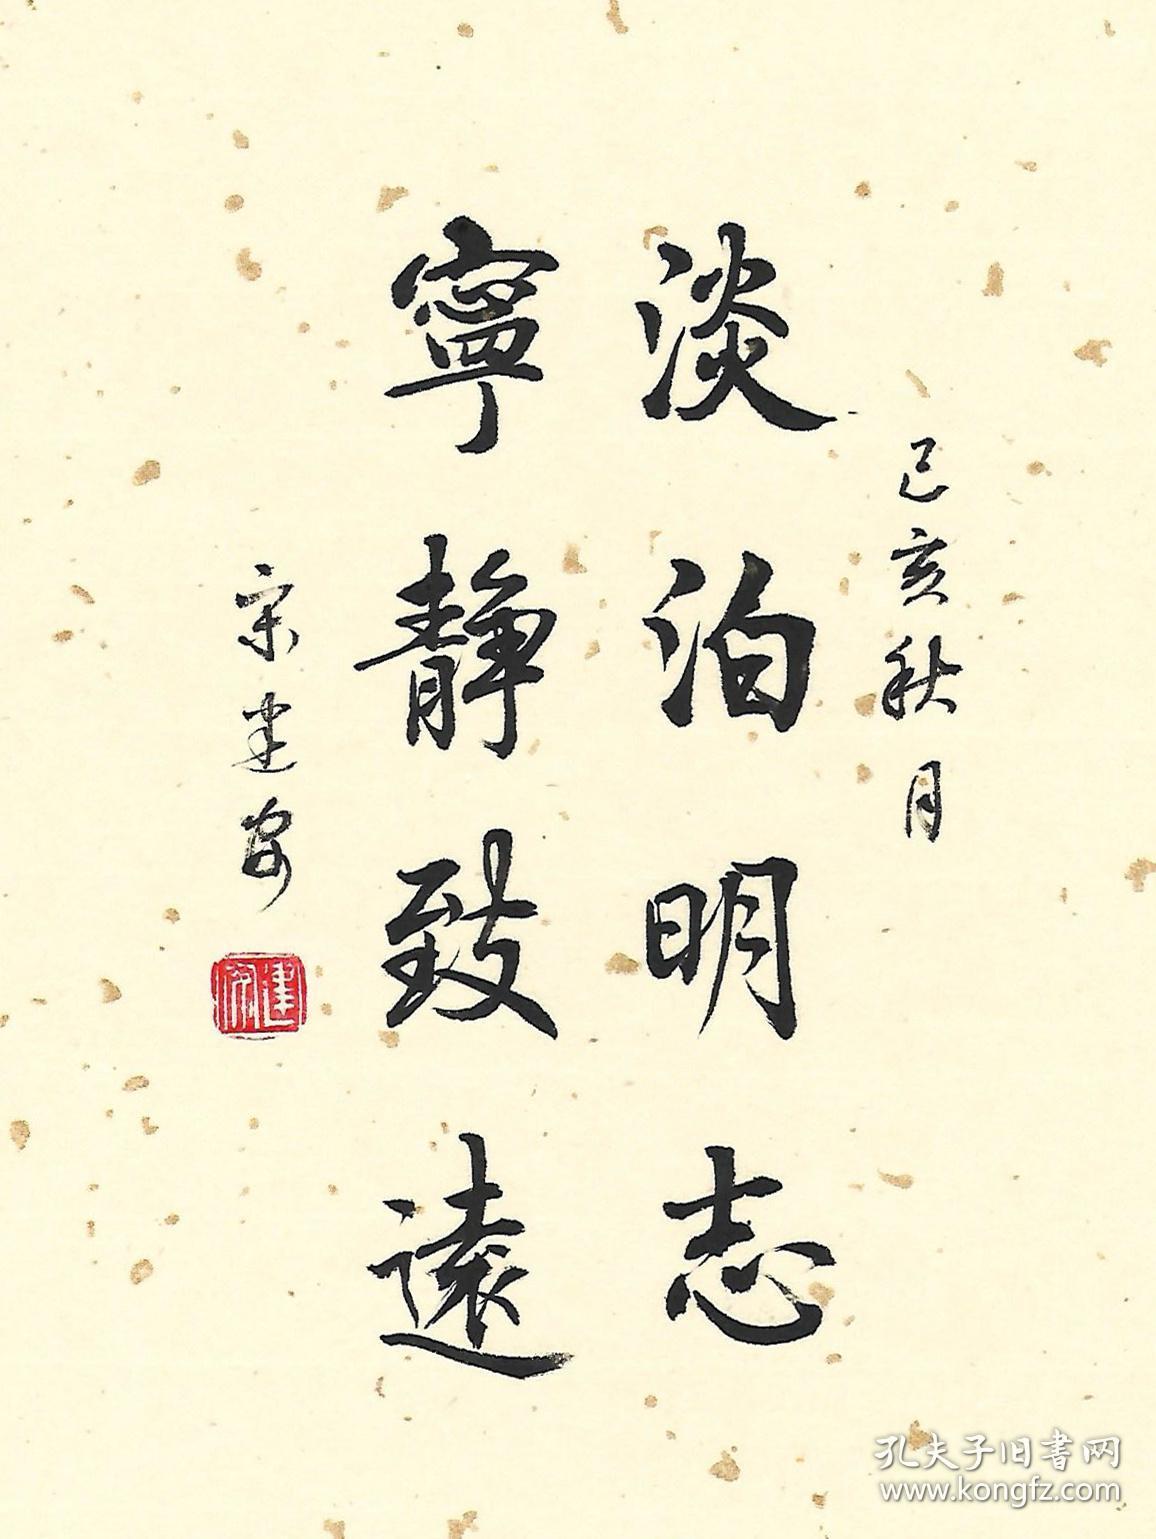 己亥秋月
淡泊明志
寧靜致遠
宋建安
建安
孔夫子旧書网
www.kongfz.com